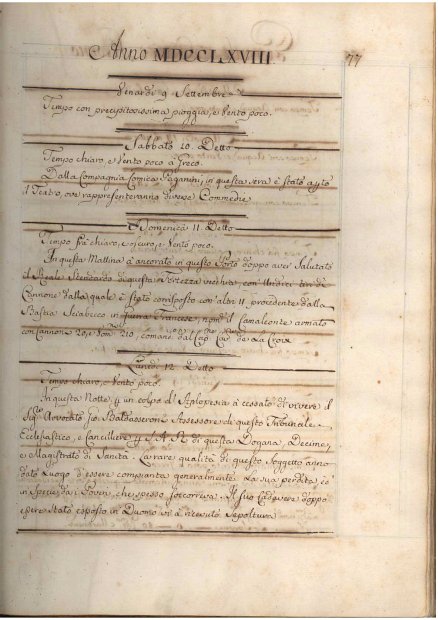 Anno MDCCLXVIII
77
Venardì 9 Settembre
Tempo con precipitosissima pioggia, e Vento poco.
Sabbato 10. Detto
Tempo chiaro, e Vento poco à Greco.
Dalla Compagnia Comica Paganini, in questa sera è stato
il Teatro, ove rappresenteranno diverse Commedie
Domenica 11. Detto
Tempo frà chiaro, e oscuro, e Vento poco.
In questa Mattina à ancorato in questo Porto doppo aver Salutato
il Reale Stendardo di questa Fortezza con Undici tiri di
Cannone dalla quale è stato corrisposto con altri 11 procedente dalla
Bastia Sciabecco in Francese, nom.º il Camaleonte armato
con Cannoni 20, e Uom. 210, coman. dal Cap. Cav. de la Croix
Lunedì 12. Detto
Tempo chiaro, e Vento poco.
In questa Notte, p un colpo d'Aplopesia à cessato di vivere il
Sig.re Avvocato Gio. Baldasseroni Assessore di questo Tribunale
Ecclesiastico, e Cancelliere p S. A. R. di questa Dogana, Decime,
e Magistrato di Sanità. Le rare qualità di questo Soggetto anno
dato luogo d'essere compianta generalmente la sua perdita, ed
in Specie dai Poveri, che spesso soccorreva. Il suo Cadavere doppo
essere stato esposto in Duomo vi à ricevuto Sepoltura